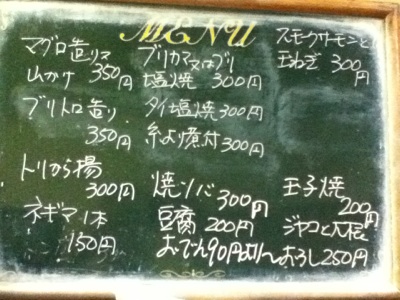 MENU
マグロ造り又ハ
山かけ 350円
ブリトロ造り
350円
トリから揚
300円
ネギマ 1本
150円
ブリカマ又はブリ
塩焼 300円
タイ塩焼 300円
糸より煮付 300円
焼ソバ 300円
豆腐 200円
おでん90円より
スモークサーモンと
玉ねぎ 300円
玉子焼
200円
ジャコと大根
おろし 250円